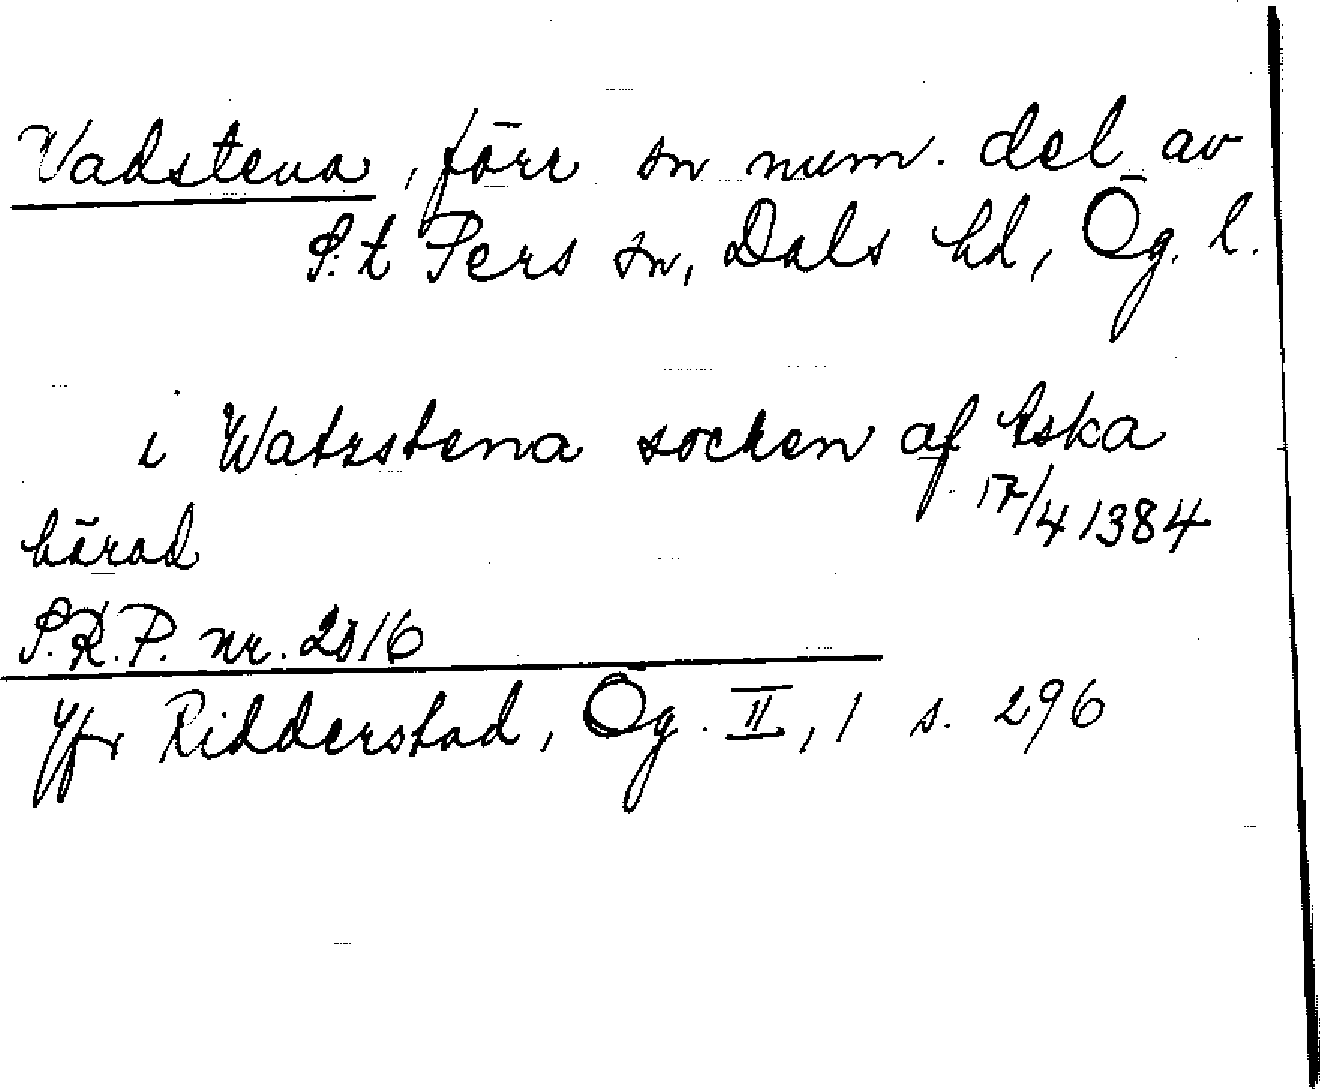 Vadstena, förr sn num. del av
S:t Pers sn, Dals hd, Ög. l.
i Watzstena socken af Aska
härad 17/4 1384
S.R.P. nr. 2016
Jfr Ridderstad, Ög. II, 1 s. 296